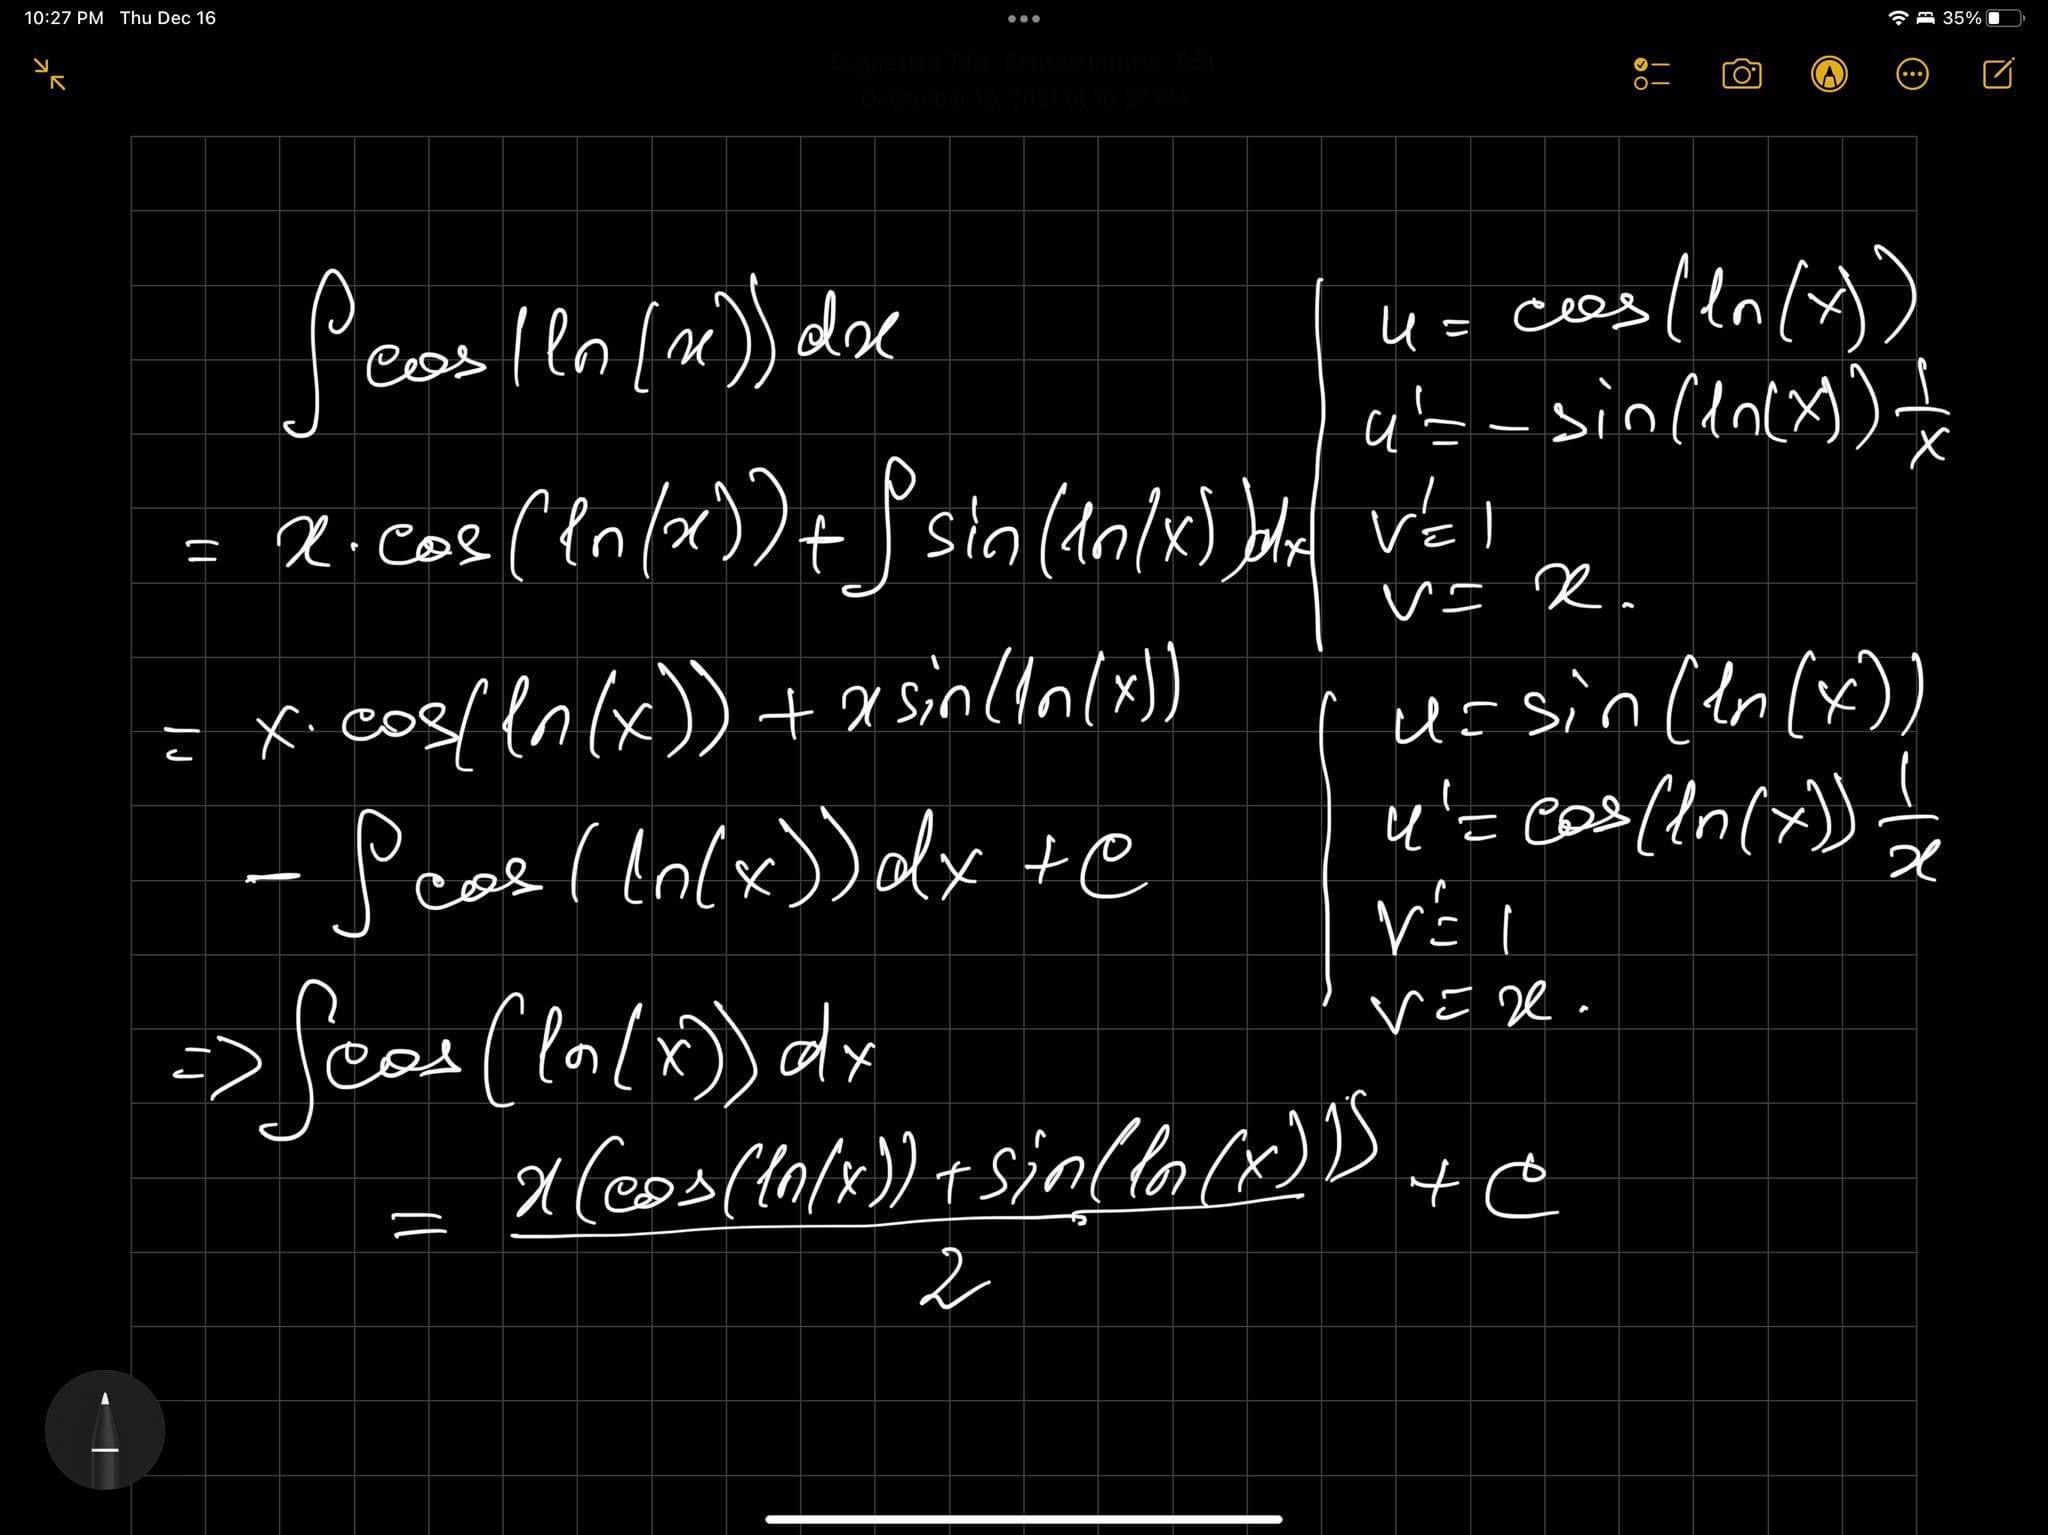 10:27 PM Thu Dec 16
35%
December 16, 2021 at 10:27 PM
∫ cos(ln(x)) dx
= x·cos(ln(x)) + ∫ sin(ln(x))dx
= x·cos(ln(x)) + x sin(ln(x))
- ∫ cos(ln(x)) dx + C
=> ∫ cos(ln(x)) dx
= x(cos(ln(x)) + sin(ln(x))) / 2 + C
u = cos(ln(x))
u' = - sin(ln(x)) 1/x
v' = 1
v = x.
u = sin(ln(x))
u' = cos(ln(x)) 1/x
v' = 1
v = x.